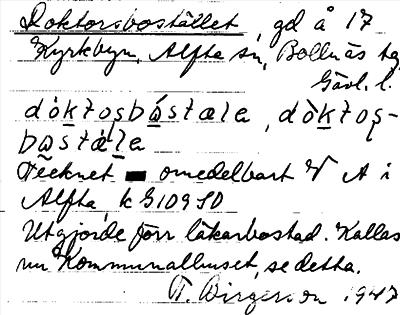 Doktorsbostället, gd å 17
Kyrkbyn, Alfta sn, Bollnäs hd,
Gävl. l.
dòktosbåstæla, dòktos-
bastæla
Tecknet omedelbart V A i
Alfta k G109 SO
Utgjorde förr läkarbostad. Kallas
nu Kommunalhuset, se detta.
T. Birgerson 1947